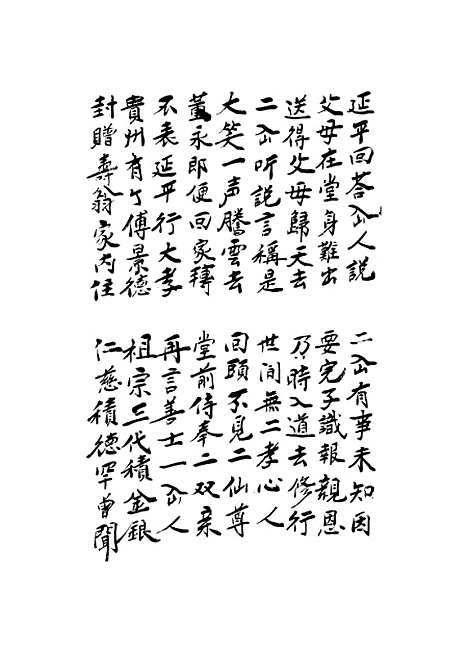 延平回荅仚人說 二仚有事未知因
父母在堂身難出 要完子識報親恩
送得父母歸天去 乃時入道去修行
二仚听説言稱是 世间無二孝心人
大笑一声騰雲去 回頭不見二仙尊
董永即便回家轉 堂前侍奉二双亲
不表延平行大孝 再言善士一仚人
貴州有个傅景德 祖宗三代積金銀
封贈壽翁家内住 仁慈積德罕曾聞